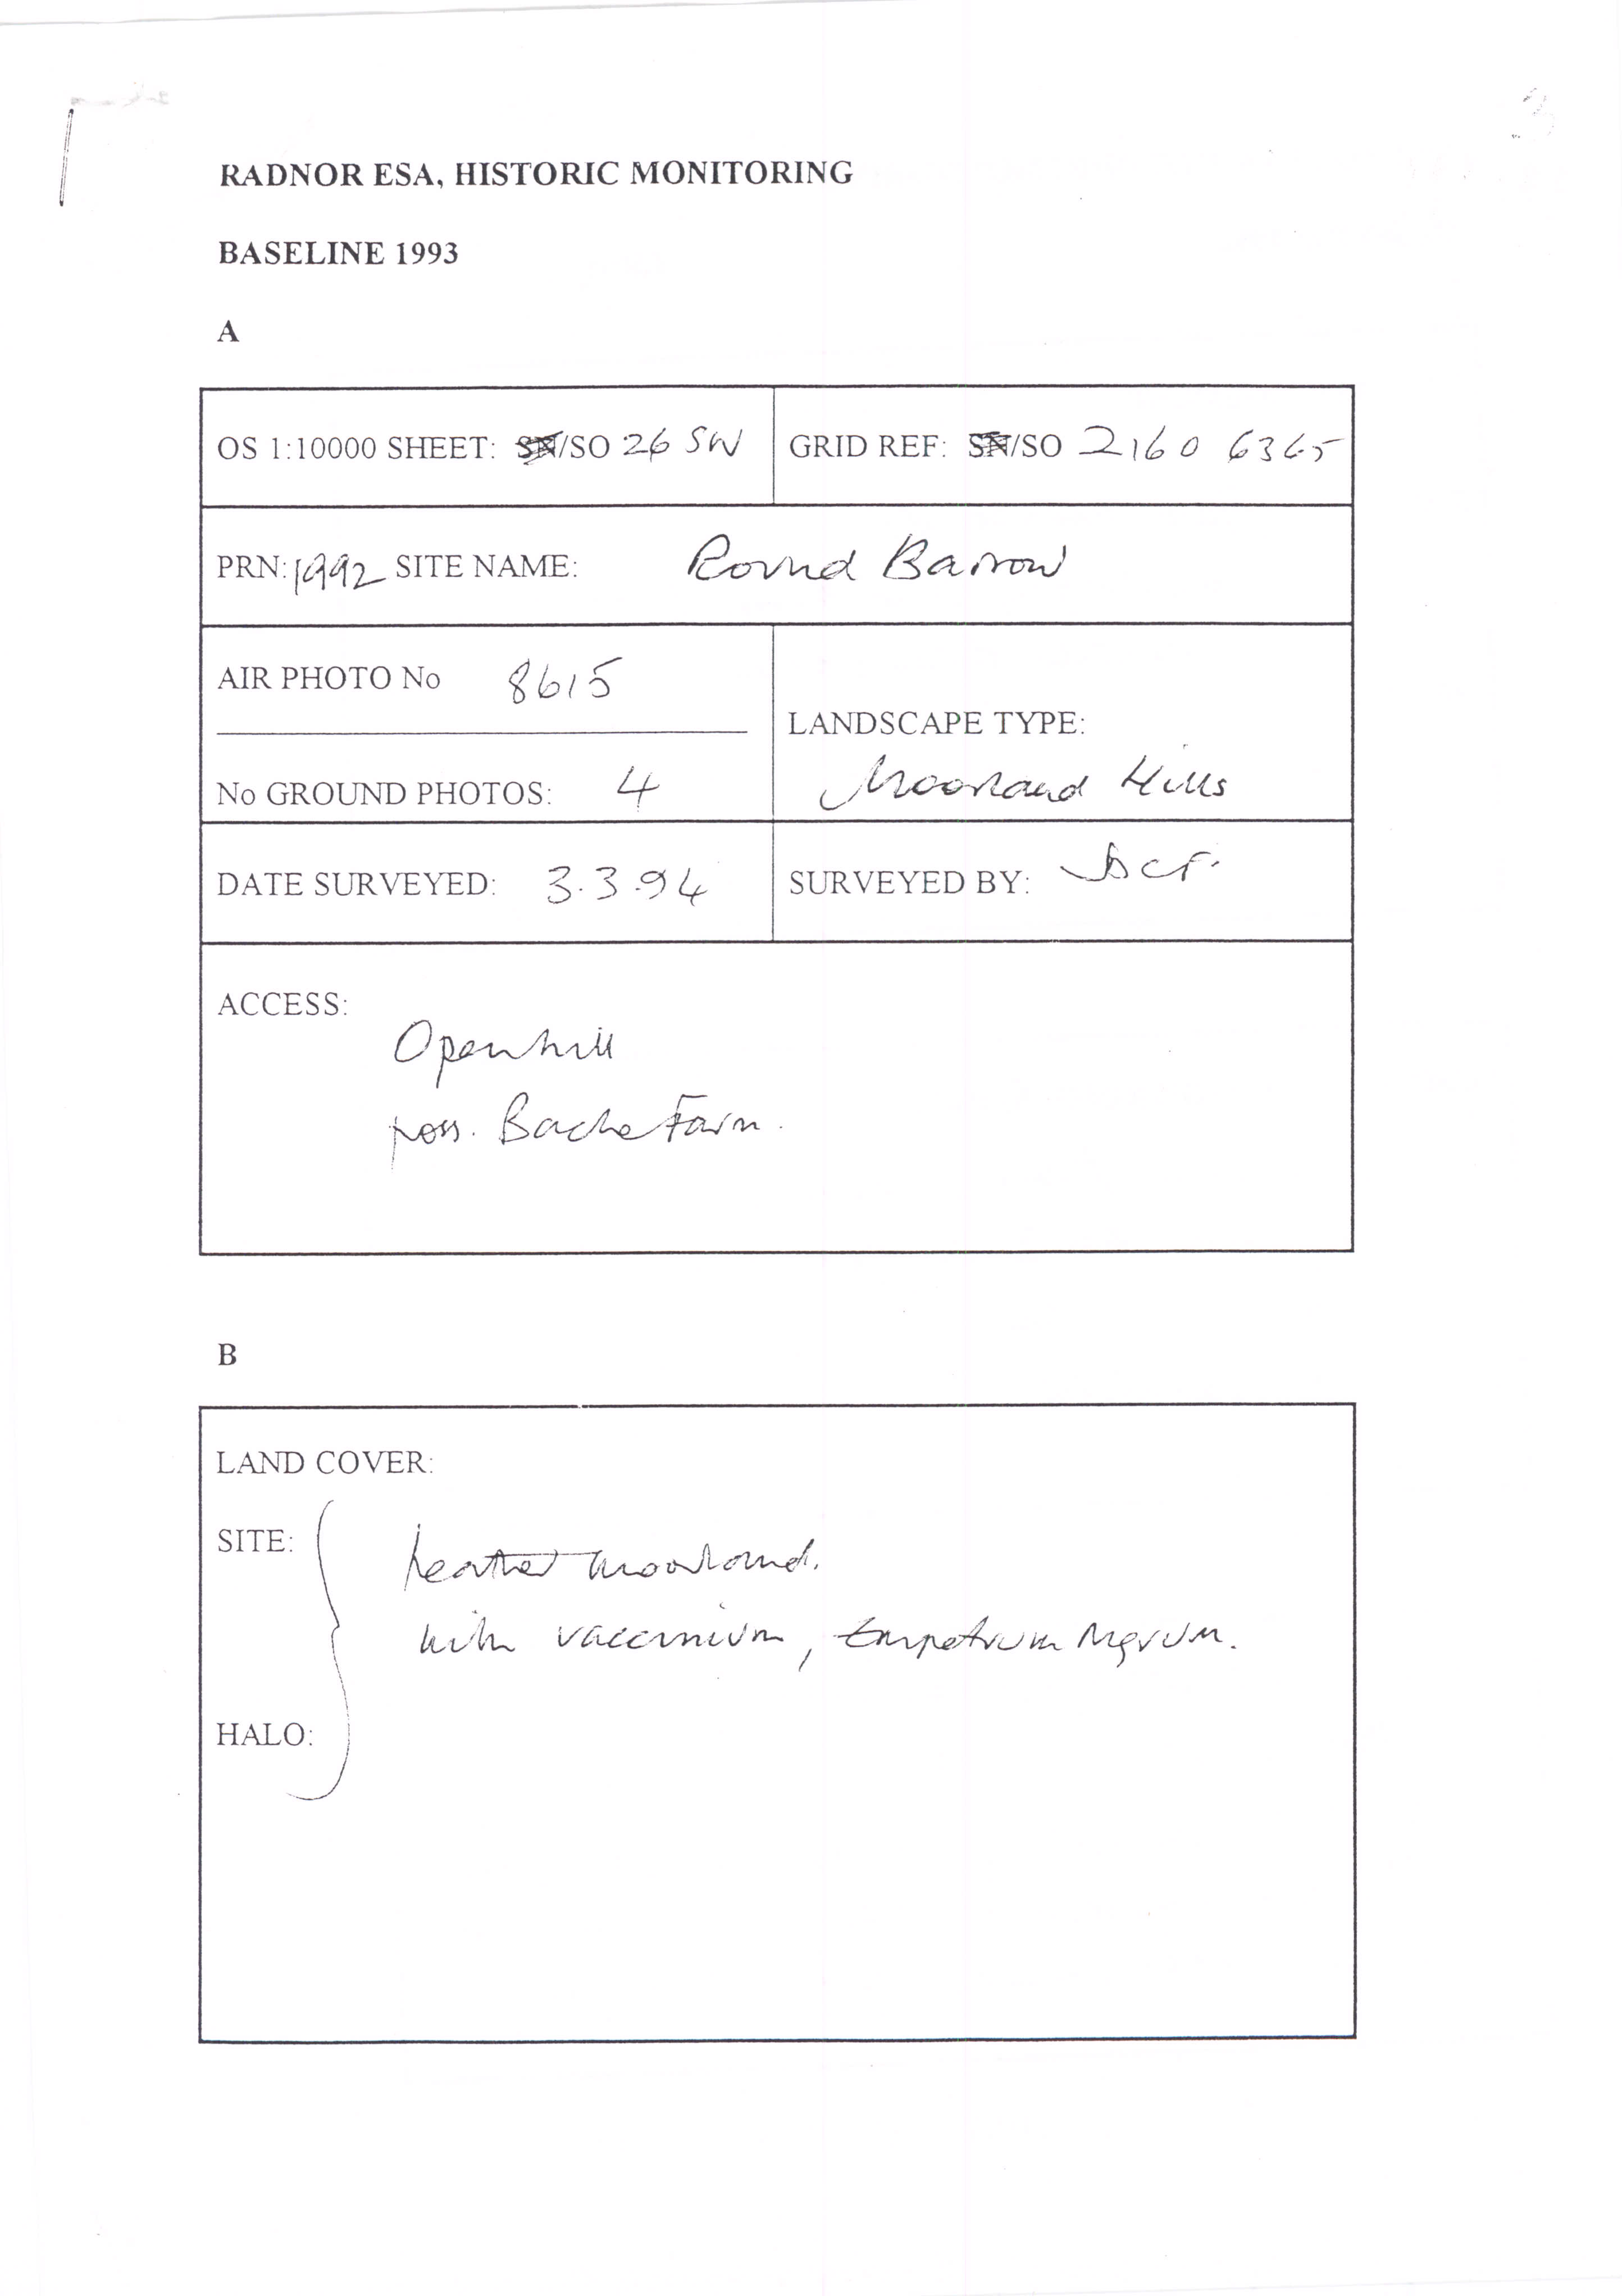 RADNOR ESA, HISTORIC MONITORING
BASELINE 1993
A
OS 1:10000 SHEET: SN/SO 26 SW
GRID REF: SN/SO 2160 6365
PRN: 1992 SITE NAME: Round Barrow
AIR PHOTO No 8615
No GROUND PHOTOS: 4
LANDSCAPE TYPE:
Moorland Hills
DATE SURVEYED: 3.3.94
SURVEYED BY:
ACCESS:
Openhill
poss. Bache Farm.
B
LAND COVER:
SITE:
heather moorland.
with vaccinium, Empetrum Nigrum.
HALO: